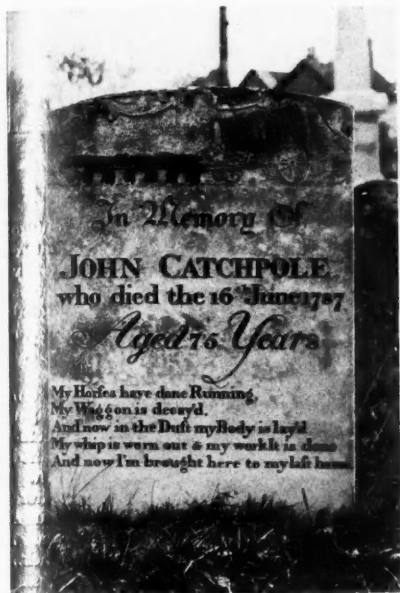 In Memory Of
JOHN CATCHPOLE
who died the 16th June 1787
Aged 75 Years
My Horſes have done Running,
My Waggon is decay'd,
And now in the Duſt my Body is lay'd
My whip is worn out & my work It is done
And now I'm brought here to my laſt home